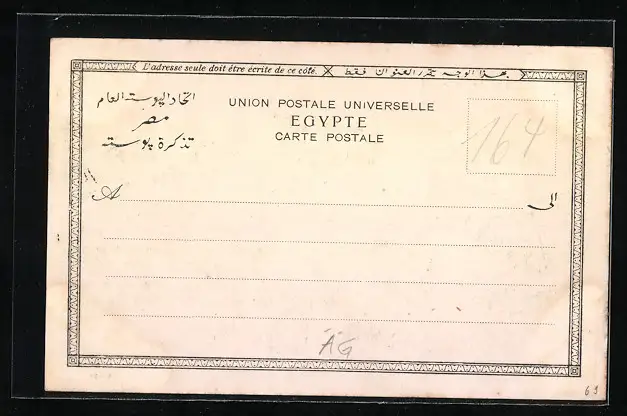 L'adresse seule doit être écrite de ce côté. بهذا الوجه يحرر العنوان فقط
اتحاد البوسته العام
مصر
تذكرة بوسته
UNION POSTALE UNIVERSELLE
EGYPTE
CARTE POSTALE
164
A الى
ÄG
63